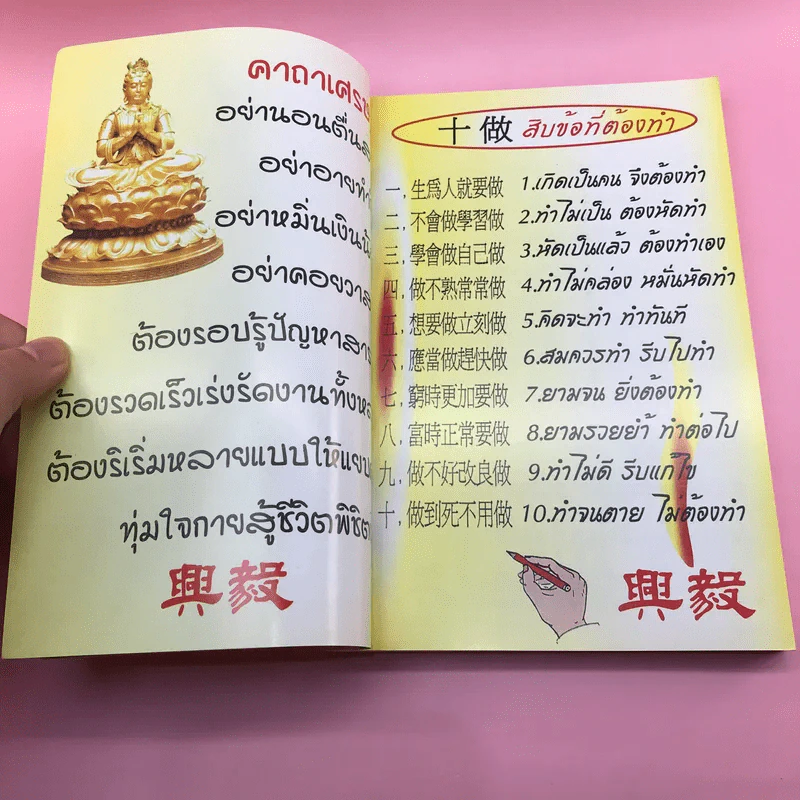 คาถาเศรษ
อย่านอนตื่นส
อย่าอายทำ
อย่าหมิ่นเงินน้
อย่าคอยวาส
ต้องรอบรู้ปัญหาสาร
ต้องรวดเร็วเร่งรัดงานทั้งห
ต้องริเริ่มหลายแบบให้แยบ
ทุ่มใจกายสู้ชีวิตพิชิต
興毅
十做 สิบข้อที่ต้องทำ
一, 生爲人就要做 1.เกิดเป็นคน จึงต้องทำ
二, 不會做學習做 2.ทำไม่เป็น ต้องหัดทำ
三, 學會做自己做 3.หัดเป็นแล้ว ต้องทำเอง
四, 做不熟常常做 4.ทำไม่คล่อง หมั่นหัดทำ
五, 想要做立刻做 5.คิดจะทำ ทำทันที
六, 應當做趕快做 6.สมควรทำ รีบไปทำ
七, 窮時更加要做 7.ยามจน ยิ่งต้องทำ
八, 富時正常要做 8.ยามรวยย้ำ ทำต่อไป
九, 做不好改良做 9.ทำไม่ดี รีบแก้ไข
十, 做到死不用做 10.ทำจนตาย ไม่ต้องทำ
興毅